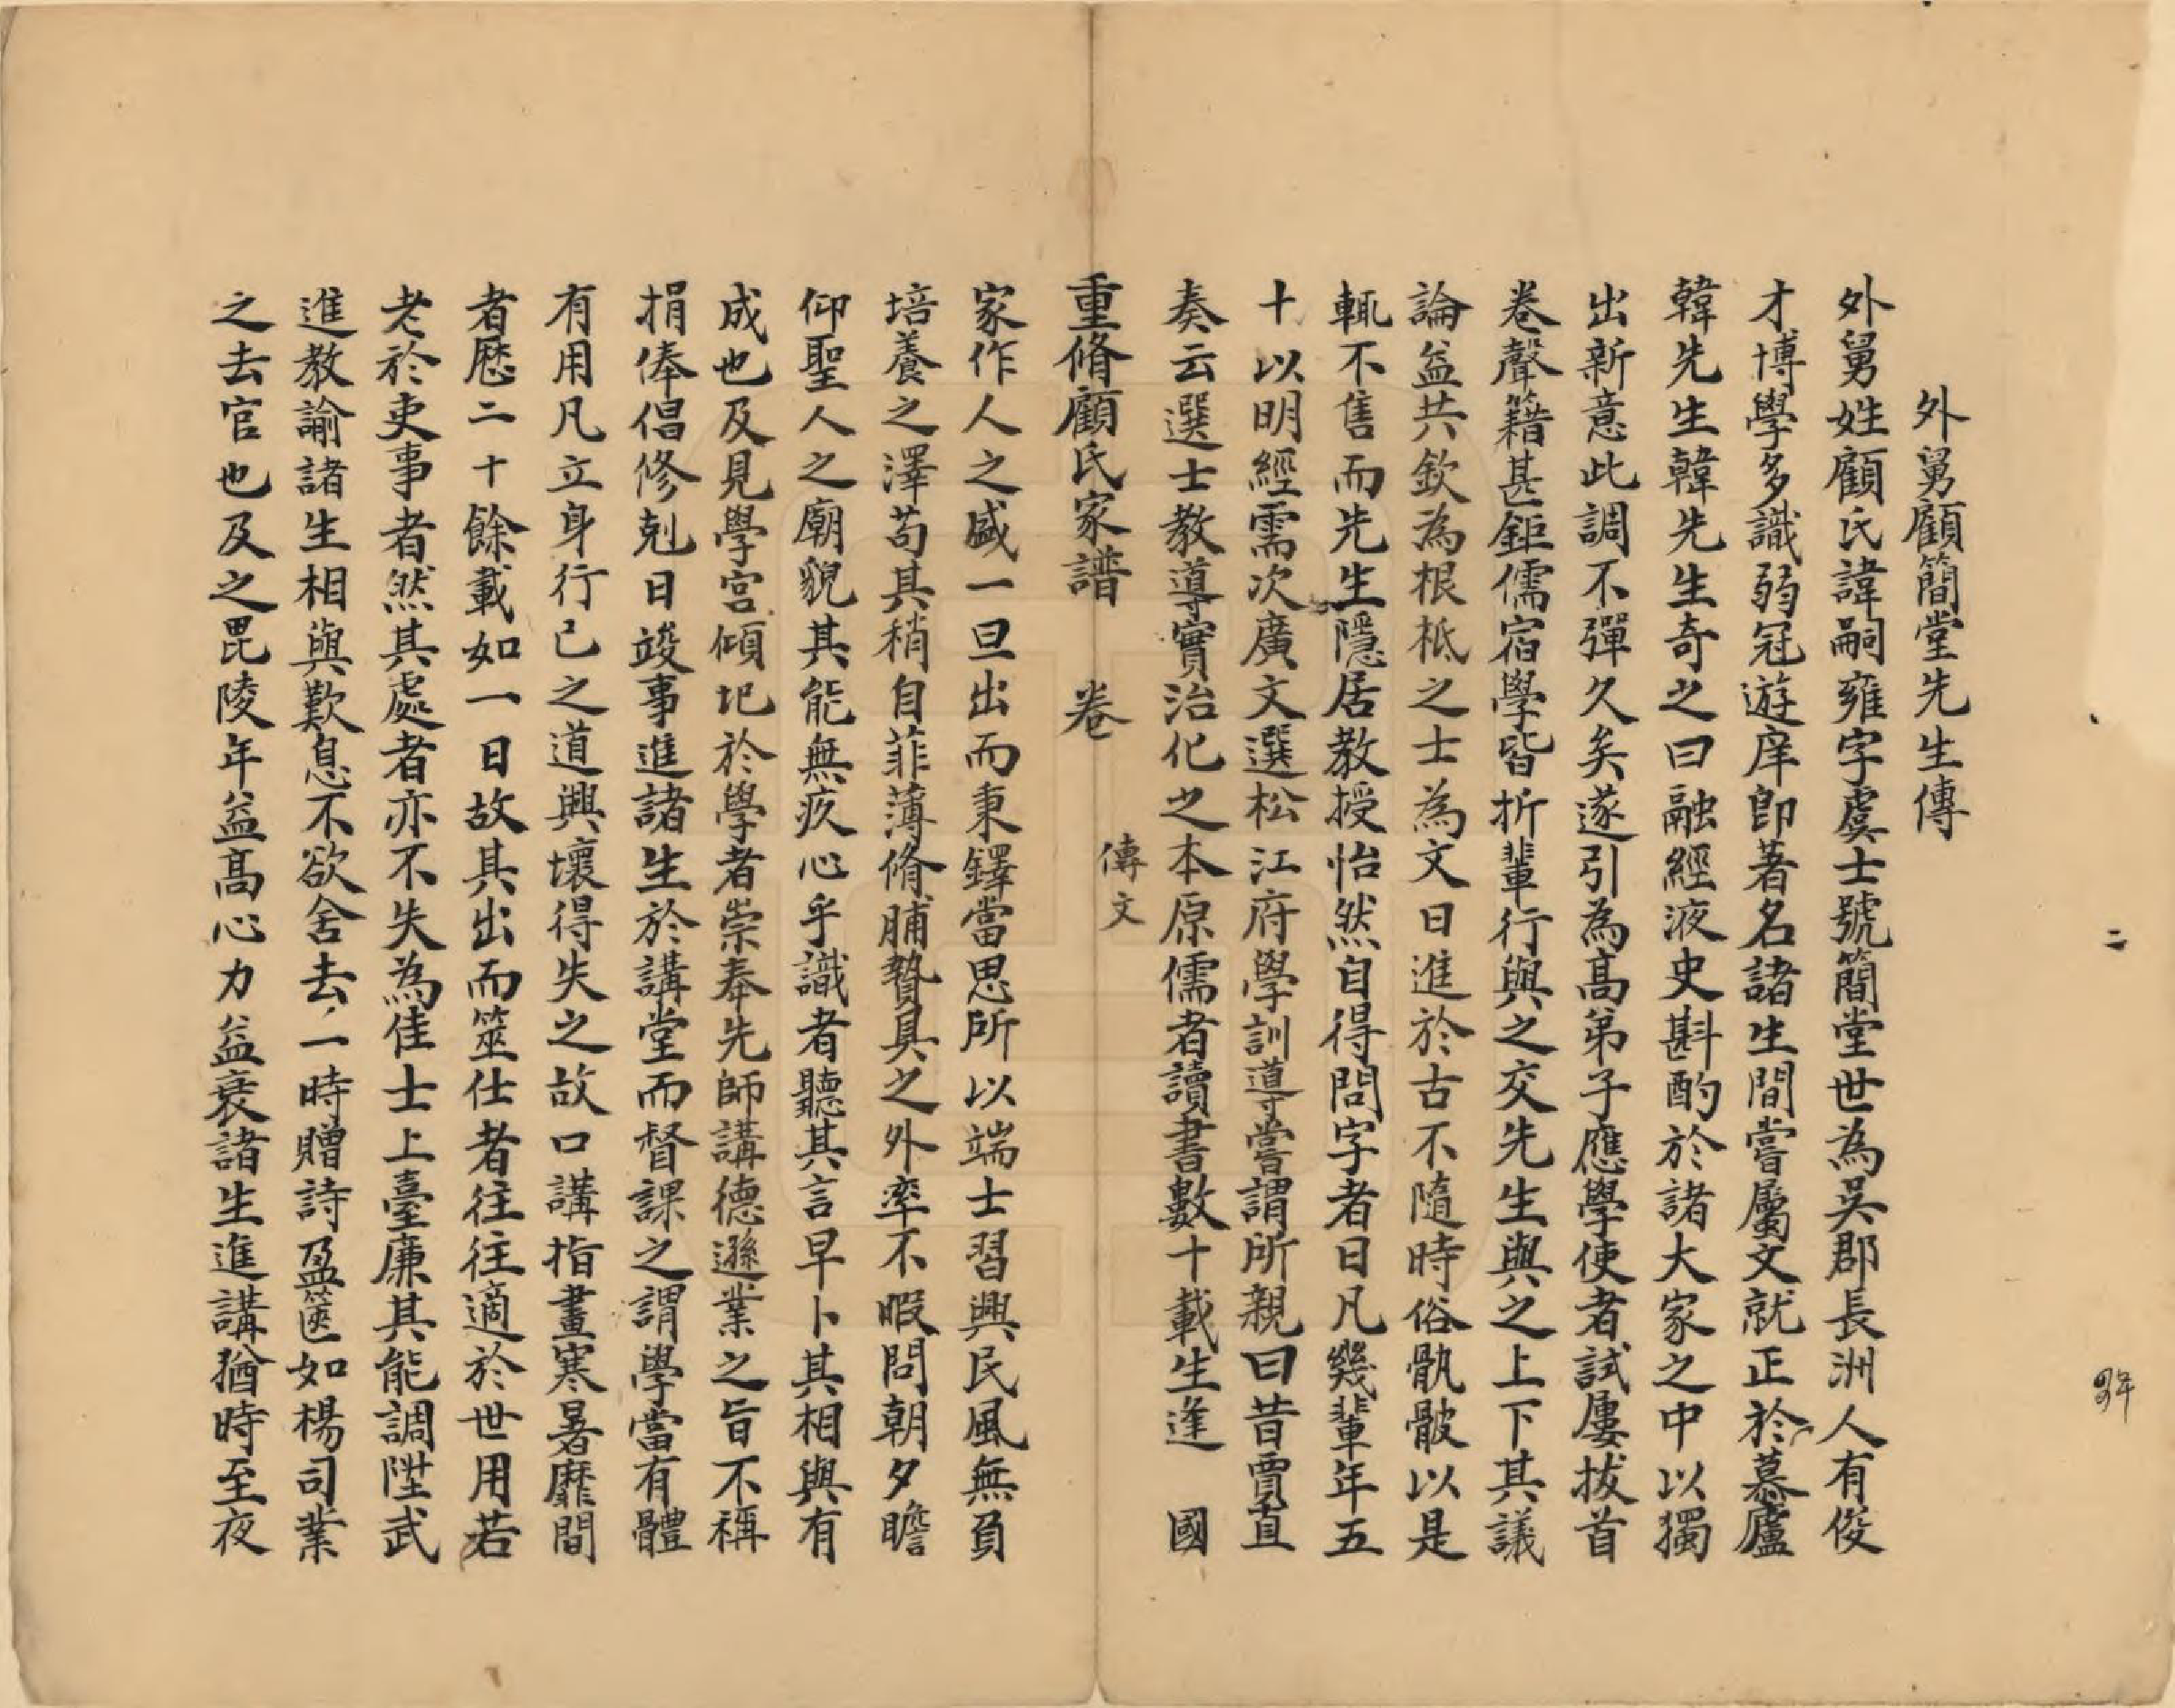 外舅顧簡堂先生傳
外舅姓顧氏諱嗣雍字虞士號簡堂世為吳郡長洲人有俊
才博學多識弱冠遊庠即著名諸生間嘗屬文就正於慕廬
韓先生韓先生奇之曰融經液史斟酌於諸大家之中以獨
出新意此調不彈久矣遂引為高弟子應學使者試屢拔首
卷聲籍甚鉅儒宿學皆折輩行與之交先生與之上下其議
論益共欽為根柢之士為文日進於古不隨時俗骫骳以是
輒不售而先生隱居教授怡然自得問字者日凡幾輩年五
十以明經需次廣文選松江府學訓導嘗謂所親曰昔賈直
奏云選士教導實治化之本原儒者讀書數十載生逢 國
重脩顧氏家譜 卷 傳文
家作人之盛一旦出而秉鐸當思所以端士習興民風無負
培養之澤苟其稍自菲薄脩脯贄具之外率不暇問朝夕瞻
仰聖人之廟貌其能無疚心乎識者聽其言早卜其相與有
成也及見學宮傾圯於學者崇奉先師講德遜業之旨不稱
捐俸倡修剋日竣事進諸生於講堂而督課之謂學當有體
有用凡立身行己之道興壞得失之故口講指畫寒暑靡間
者歷二十餘載如一日故其出而筮仕者往往適於世用若
老於吏事者然其處者亦不失為佳士上臺廉其能調陞武
進教諭諸生相與歎息不欲舍去一時贈詩盈篋如楊司業
之去官也及之毘陵年益高心力益衰諸生進講猶時至夜
二